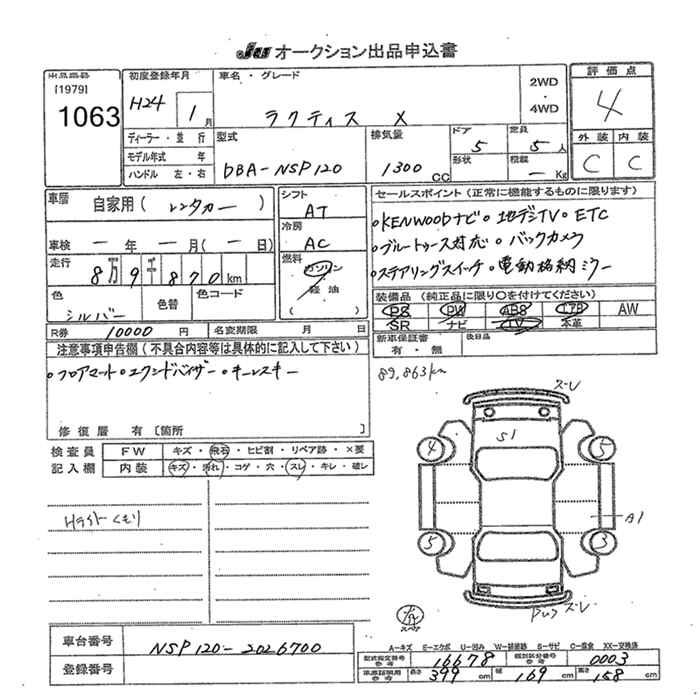 JU オークション出品申込書
出品番号
[1979]
1063
初度登録年月
H24 1月
車名・グレード
ラクティス X
2WD
・
4WD
評価点
4
外装 内装
C C
ディーラー・並行
モデル年式 年
ハンドル 左・右
型式
DBA-NSP120
排気量
1300 CC
ドア 5
定員 5人
形状
積載 — Kg
車歴 自家用( レンタカー )
車検 — 年 — 月( — 日)
走行 8万9千870km
色 シルバー
色替
色コード
R券 10000 円
名変期限 月 日
シフト
AT
冷房
AC
燃料
ガソリン
軽油
( )
セールスポイント(正常に機能するものに限ります)
•KENWOODナビ•地デジTV•ETC
•ブルートゥース対応•バックカメラ
•ステアリングスイッチ•電動格納ミラー
装備品(純正品に限り〇を付けてください)
PS PW ABS エアB AW
SR ナビ TV 本革
新車保証書
有・無
後日品
注意事項申告欄(不具合内容等は具体的に記入して下さい)
•フロアマット•エクンドバイザー•キーレスキー
修復歴 有[箇所 ]
89,863km
検査員
記入欄
FW キズ・飛石・ヒビ割・リペア跡・×要
内装 キズ・汚れ・コゲ・穴・スレ・キレ・破レ
Hライトくもり
スレ
S1
4
5
A1
5
3
スレ
A—キズ E—エクボ U—凹み W—補修跡 S—サビ C—腐食 XX—交換済
車台番号 NSP120-2026700
登録番号
型式指定番号 参考 16678
類別区分番号 参考 0003
長さ 399cm 幅 169cm 高さ 158cm